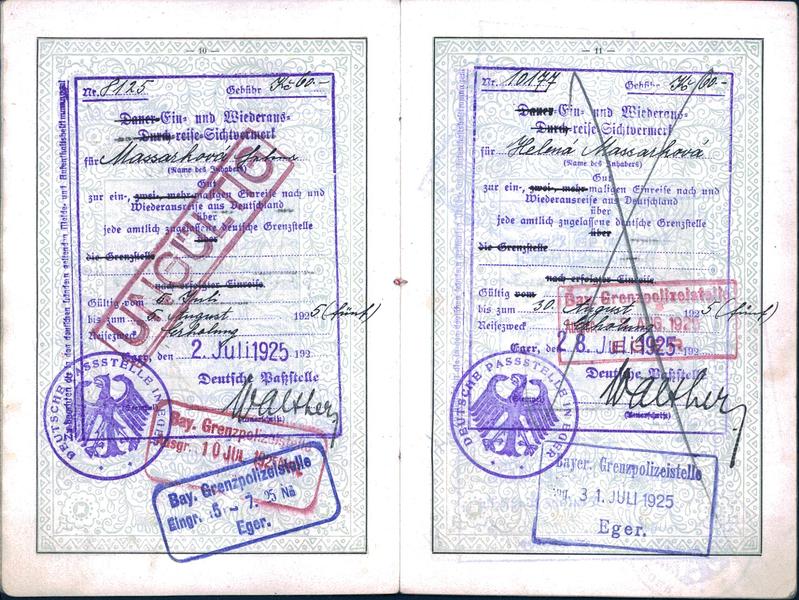 — 10 —
Nr. 8125 Gebühr Kč 60.-
Dauer-Ein- und Wiederaus-
Durch-reise-Sichtvermerk
für Massarková Helena
(Name des Inhabers)
Gut
zur ein-, zwei-, mehr-maligen Einreise nach und
Wiederausreise aus Deutschland
über
jede amtlich zugelassene deutsche Grenzstelle
über
die Grenzstelle
nach erfolgter Einreise
UNGÜLTIG
Gültig vom 2. Juli
bis zum 6. August 1925 (fünf)
Reisezweck Erholung
Eger, den 2. Juli 1925 192
Deutsche Paßstelle
Walther
(Unterschrift)
DEUTSCHE PASSSTELLE IN EGER
Bay. Grenzpolizeistelle
Ausgr. 10 JUL. 1925
Bay. Grenzpolizeistelle
Eingr. 5 - 7. 25
Eger.
— 11 —
Nr. 10177 Gebühr Kč 60.-
Dauer-Ein- und Wiederaus-
Durch-reise-Sichtvermerk
für Helena Massarková
(Name des Inhabers)
Gut
zur ein-, zwei-, mehr-maligen Einreise nach und
Wiederausreise aus Deutschland
über
jede amtlich zugelassene deutsche Grenzstelle
über
die Grenzstelle
nach erfolgter Einreise
Gültig vom
bis zum 30. August 1925 (fünf)
Reisezweck Erholung
Eger, den 28. Juli 1925 192
Deutsche Paßstelle
Walther
(Stempel)
(Unterschrift)
DEUTSCHE PASSSTELLE IN EGER
Bay. Grenzpolizeistelle
AUG. 1925
Bayer. Grenzpolizeistelle
31. JULI 1925
Eger.